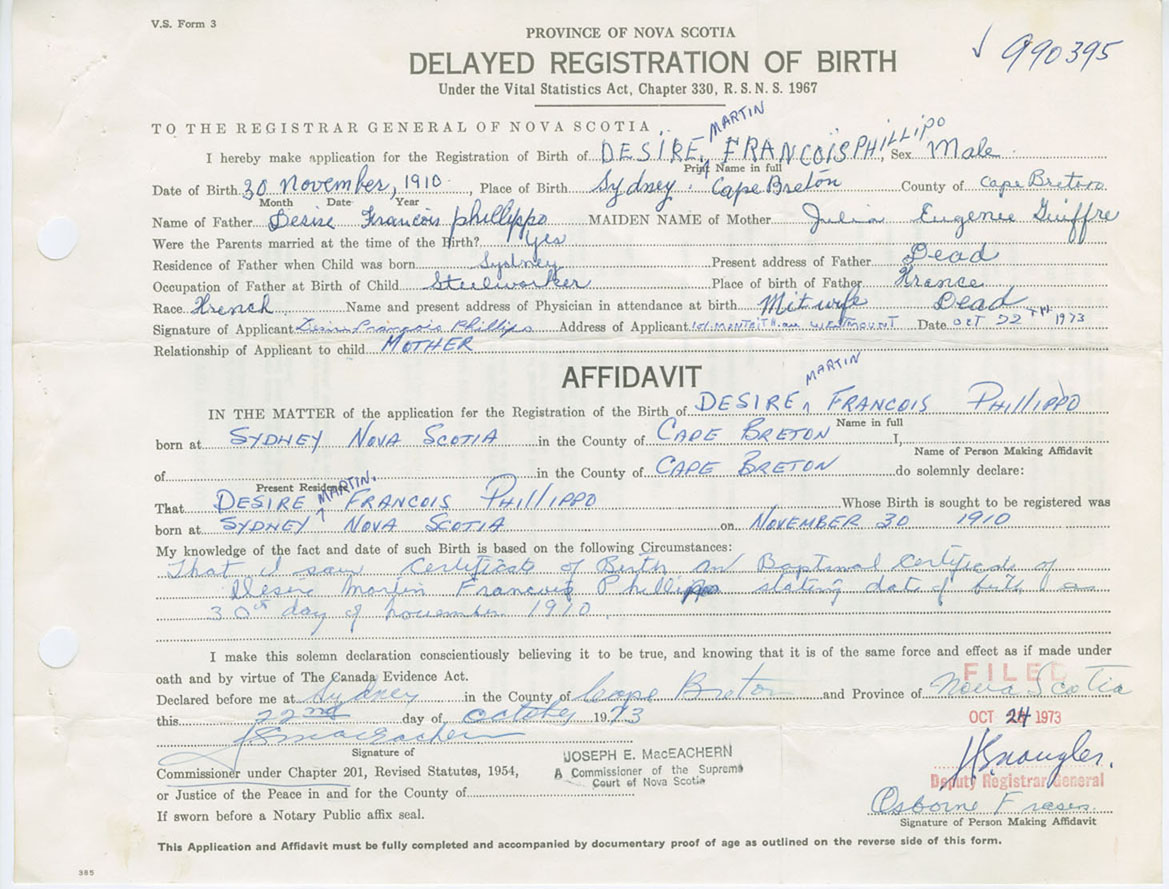 V.S. Form 3
PROVINCE OF NOVA SCOTIA
990395
DELAYED REGISTRATION OF BIRTH
Under the Vital Statistics Act, Chapter 330, R.S.N.S. 1967
MARTIN
TO THE REGISTRAR GENERAL OF NOVA SCOTIA
I hereby make application for the Registration of Birth of DESIRE, FRANCOIS PHILLIPO, Sex Male
Print Name in full
Date of Birth 30 November, 1910, Place of Birth Sydney, Cape Breton County of Cape Breton
Month Date Year
Name of Father Desire Francois phillippo MAIDEN NAME of Mother Julia Eugenie Guiffre
Were the Parents married at the time of the Birth? yes
Residence of Father when Child was born Sydney Present address of Father Dead
Occupation of Father at Birth of Child Steelworker Place of birth of Father France
Race French Name and present address of Physician in attendance at birth Mitwife Dead
Signature of Applicant Francois Phillipo Address of Applicant WESTMOUNT Date OCT 22 1973
Relationship of Applicant to child MOTHER
AFFIDAVIT
MARTIN
IN THE MATTER of the application for the Registration of the Birth of DESIRE FRANCOIS PHILLIPPO
Name in full
born at SYDNEY NOVA SCOTIA in the County of CAPE BRETON I,
Name of Person Making Affidavit
of in the County of CAPE BRETON do solemnly declare:
Present Residence
MARTIN.
That DESIRE FRANCOIS PHILLIPPO Whose Birth is sought to be registered was
born at SYDNEY NOVA SCOTIA on NOVEMBER 30 1910
My knowledge of the fact and date of such Birth is based on the following Circumstances:
That I saw Certificate of Birth Baptismal Certificate of
Desire Martin Francois Phillippo stating date of birth as
30th day of november 1910
I make this solemn declaration conscientiously believing it to be true, and knowing that it is of the same force and effect as if made under
oath and by virtue of The Canada Evidence Act.
FILED
Declared before me at Sydney in the County of Cape Breton and Province of Nova Scotia
this 22nd day of October 1973
OCT 24 1973
Signature of
JOSEPH E. MacEACHERN
A Commissioner of the Supreme
Court of Nova Scotia
Commissioner under Chapter 201, Revised Statutes, 1954,
Deputy Registrar General
or Justice of the Peace in and for the County of
Osborne Fraser
If sworn before a Notary Public affix seal.
Signature of Person Making Affidavit
This Application and Affidavit must be fully completed and accompanied by documentary proof of age as outlined on the reverse side of this form.
385